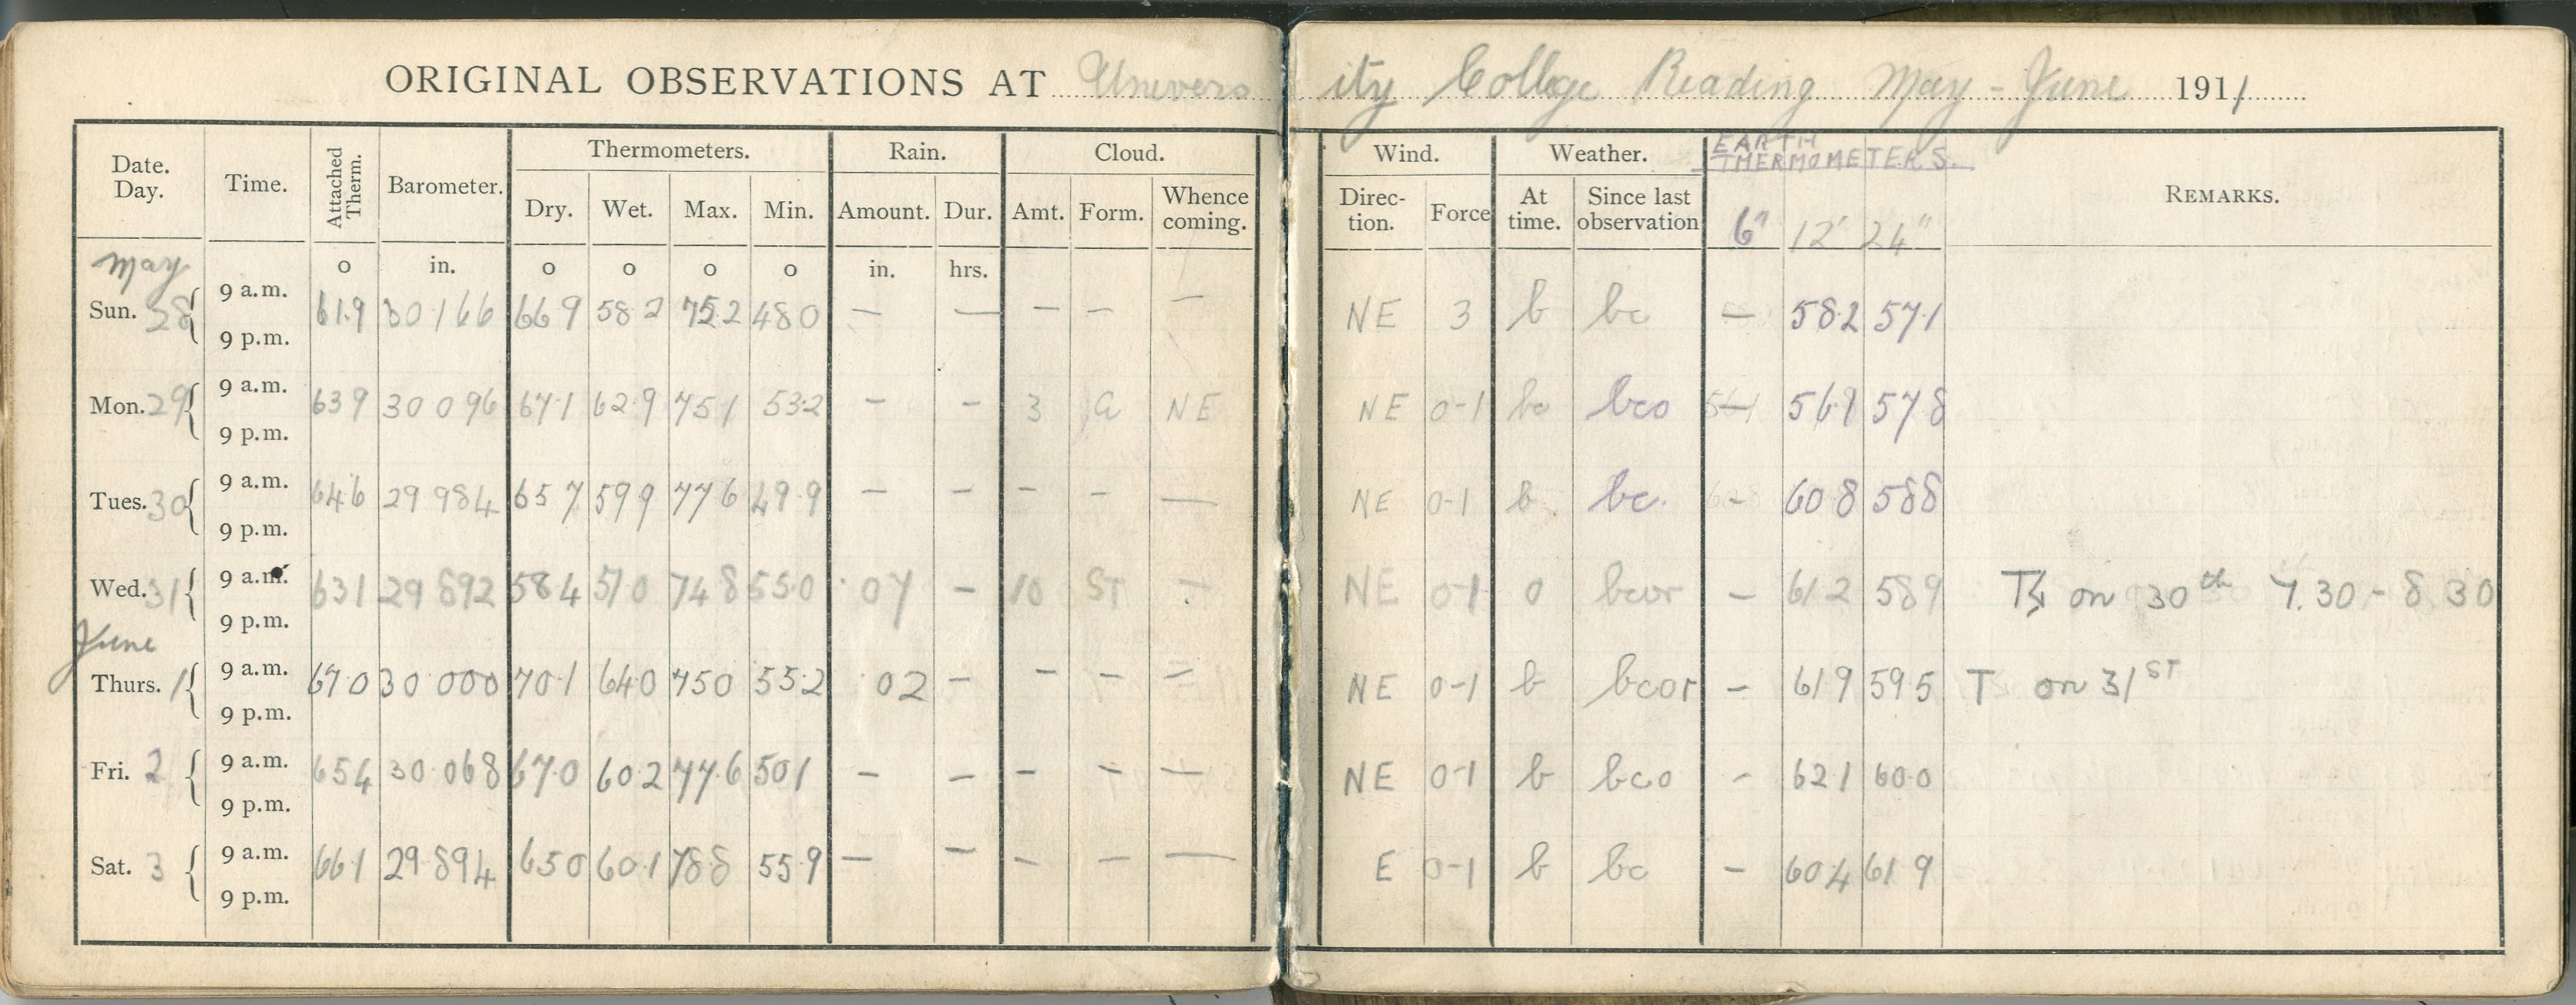 ORIGINAL OBSERVATIONS AT University College Reading May - June 1911
Date. Day. Time. Attached Therm. Barometer. Thermometers. Rain. Cloud. Wind. Weather. EARTH THERMOMETERS. REMARKS.
Dry. Wet. Max. Min. Amount. Dur. Amt. Form. Whence coming. Direc- tion. Force At time. Since last observation 6" 12" 24"
May o in. o o o o in. hrs.
Sun. 28 9 a.m. 61.9 30.166 66 9 58 2 75.2 48 0 — — — — — NE 3 b bc — 58.2 57.1
9 p.m.
Mon. 29 9 a.m. 63 9 30 096 67.1 62.9 75 1 53.2 - - 3 a NE NE 0-1 bc bco — 56.9 57 8
9 p.m.
Tues. 30 9 a.m. 64 6 29 984 65 7 59 9 77 6 49.9 — — — — — NE 0-1 b bc. — 60 8 58 8
9 p.m.
Wed. 31 9 a.m. 63 1 29 892 58.4 51 0 74 8 55 0 .07 — 10 ST — NE 0-1 o bcor — 61 2 58 9 on 30th 7.30 - 8 30
9 p.m.
June
Thurs. 1 9 a.m. 67 0 30 000 70.1 64.0 75 0 55.2 02 — — — — NE 0-1 b bcor — 61.9 59 5 T on 31ST
9 p.m.
Fri. 2 9 a.m. 65 4 30.068 67.0 60.2 77.6 50 1 — — — — — NE 0-1 b bco - 62.1 60.0
9 p.m.
Sat. 3 9 a.m. 66 1 29.894 65 0 60.1 78.8 55.9 — — — — — E 0-1 b bc — 60.4 61 9
9 p.m.